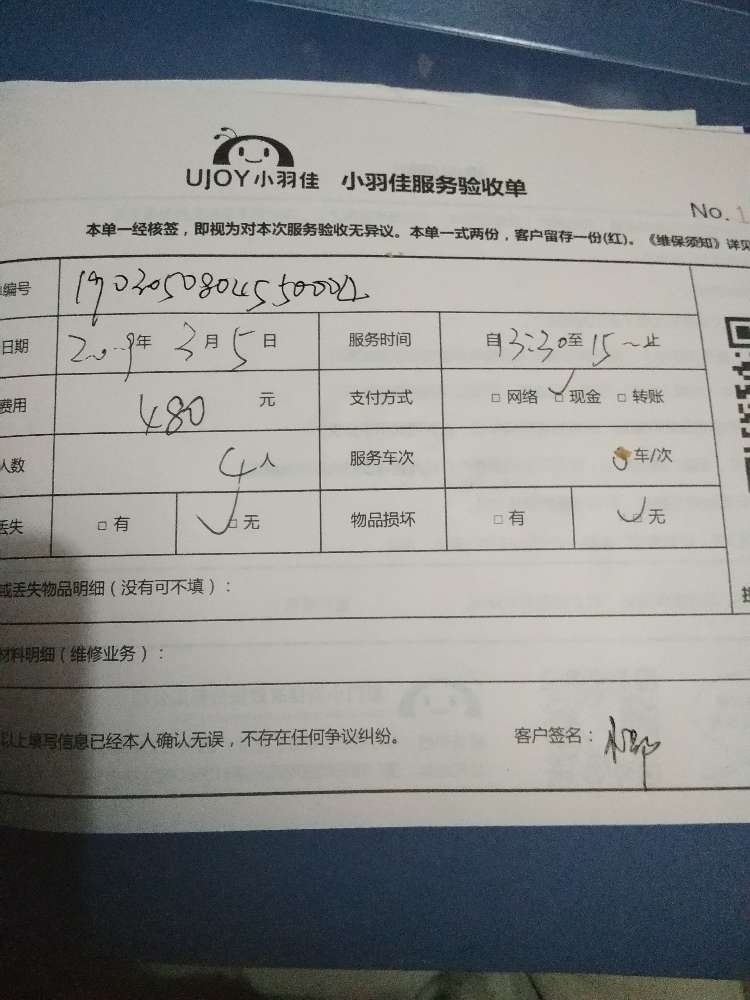 UJOY小羽佳 小羽佳服务验收单
No.1
本单一经核签，即视为对本次服务验收无异议。本单一式两份，客户留存一份(红)。《维保须知》详见
编号 190305080455000
日期 2019年3月5日 服务时间 自13:30至15 止
费用 480 元 支付方式 □ 网络 □ 现金 □ 转账
人数 4人 服务车次 车/次
丢失 □ 有 □ 无 物品损坏 □ 有 □ 无
或丢失物品明细（没有可不填）：
材料明细（维修业务）：
以上填写信息已经本人确认无误，不存在任何争议纠纷。 客户签名：